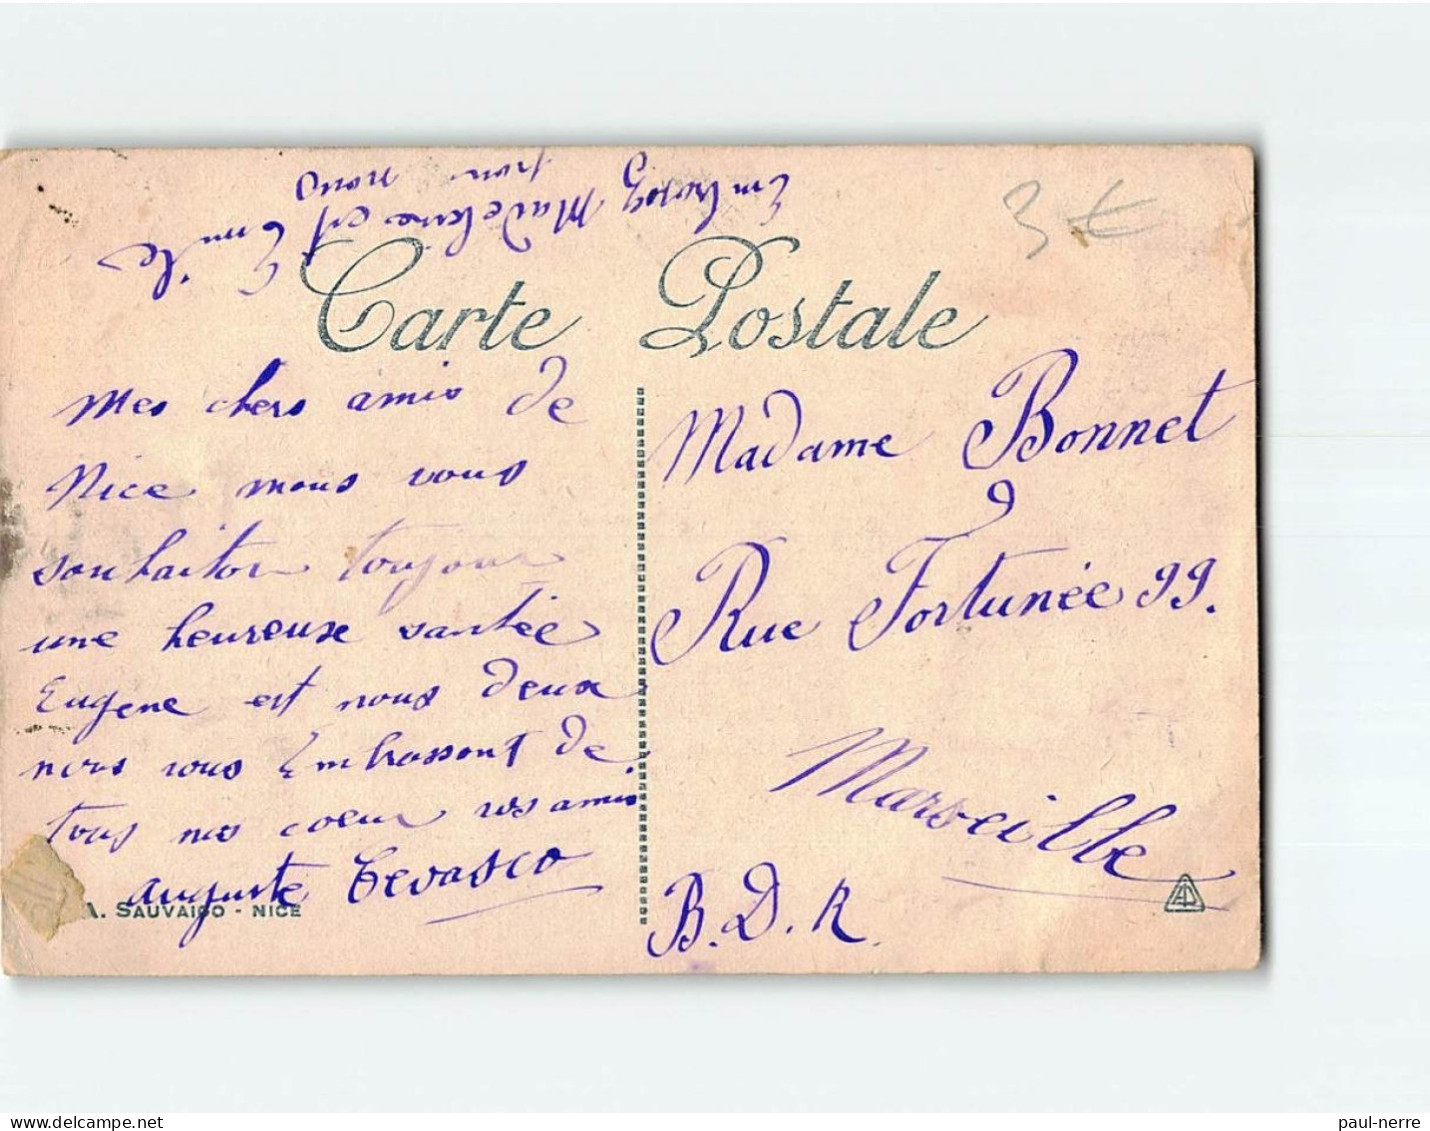 Embrasser Madeleine et Emile
pour nous
3 €
Carte Postale
Mes chers amis de
Nice nous vous
souhaiton toujour
une heureuse santée
Eugene est nous deux
nous vous Embrassont de
tous nos coeur vos amis
auguste Tevasco
A. SAUVAIGO - NICE
Madame Bonnet
9
Rue Fortunée 99.
Marseille
B. D. R.
paul-nerre